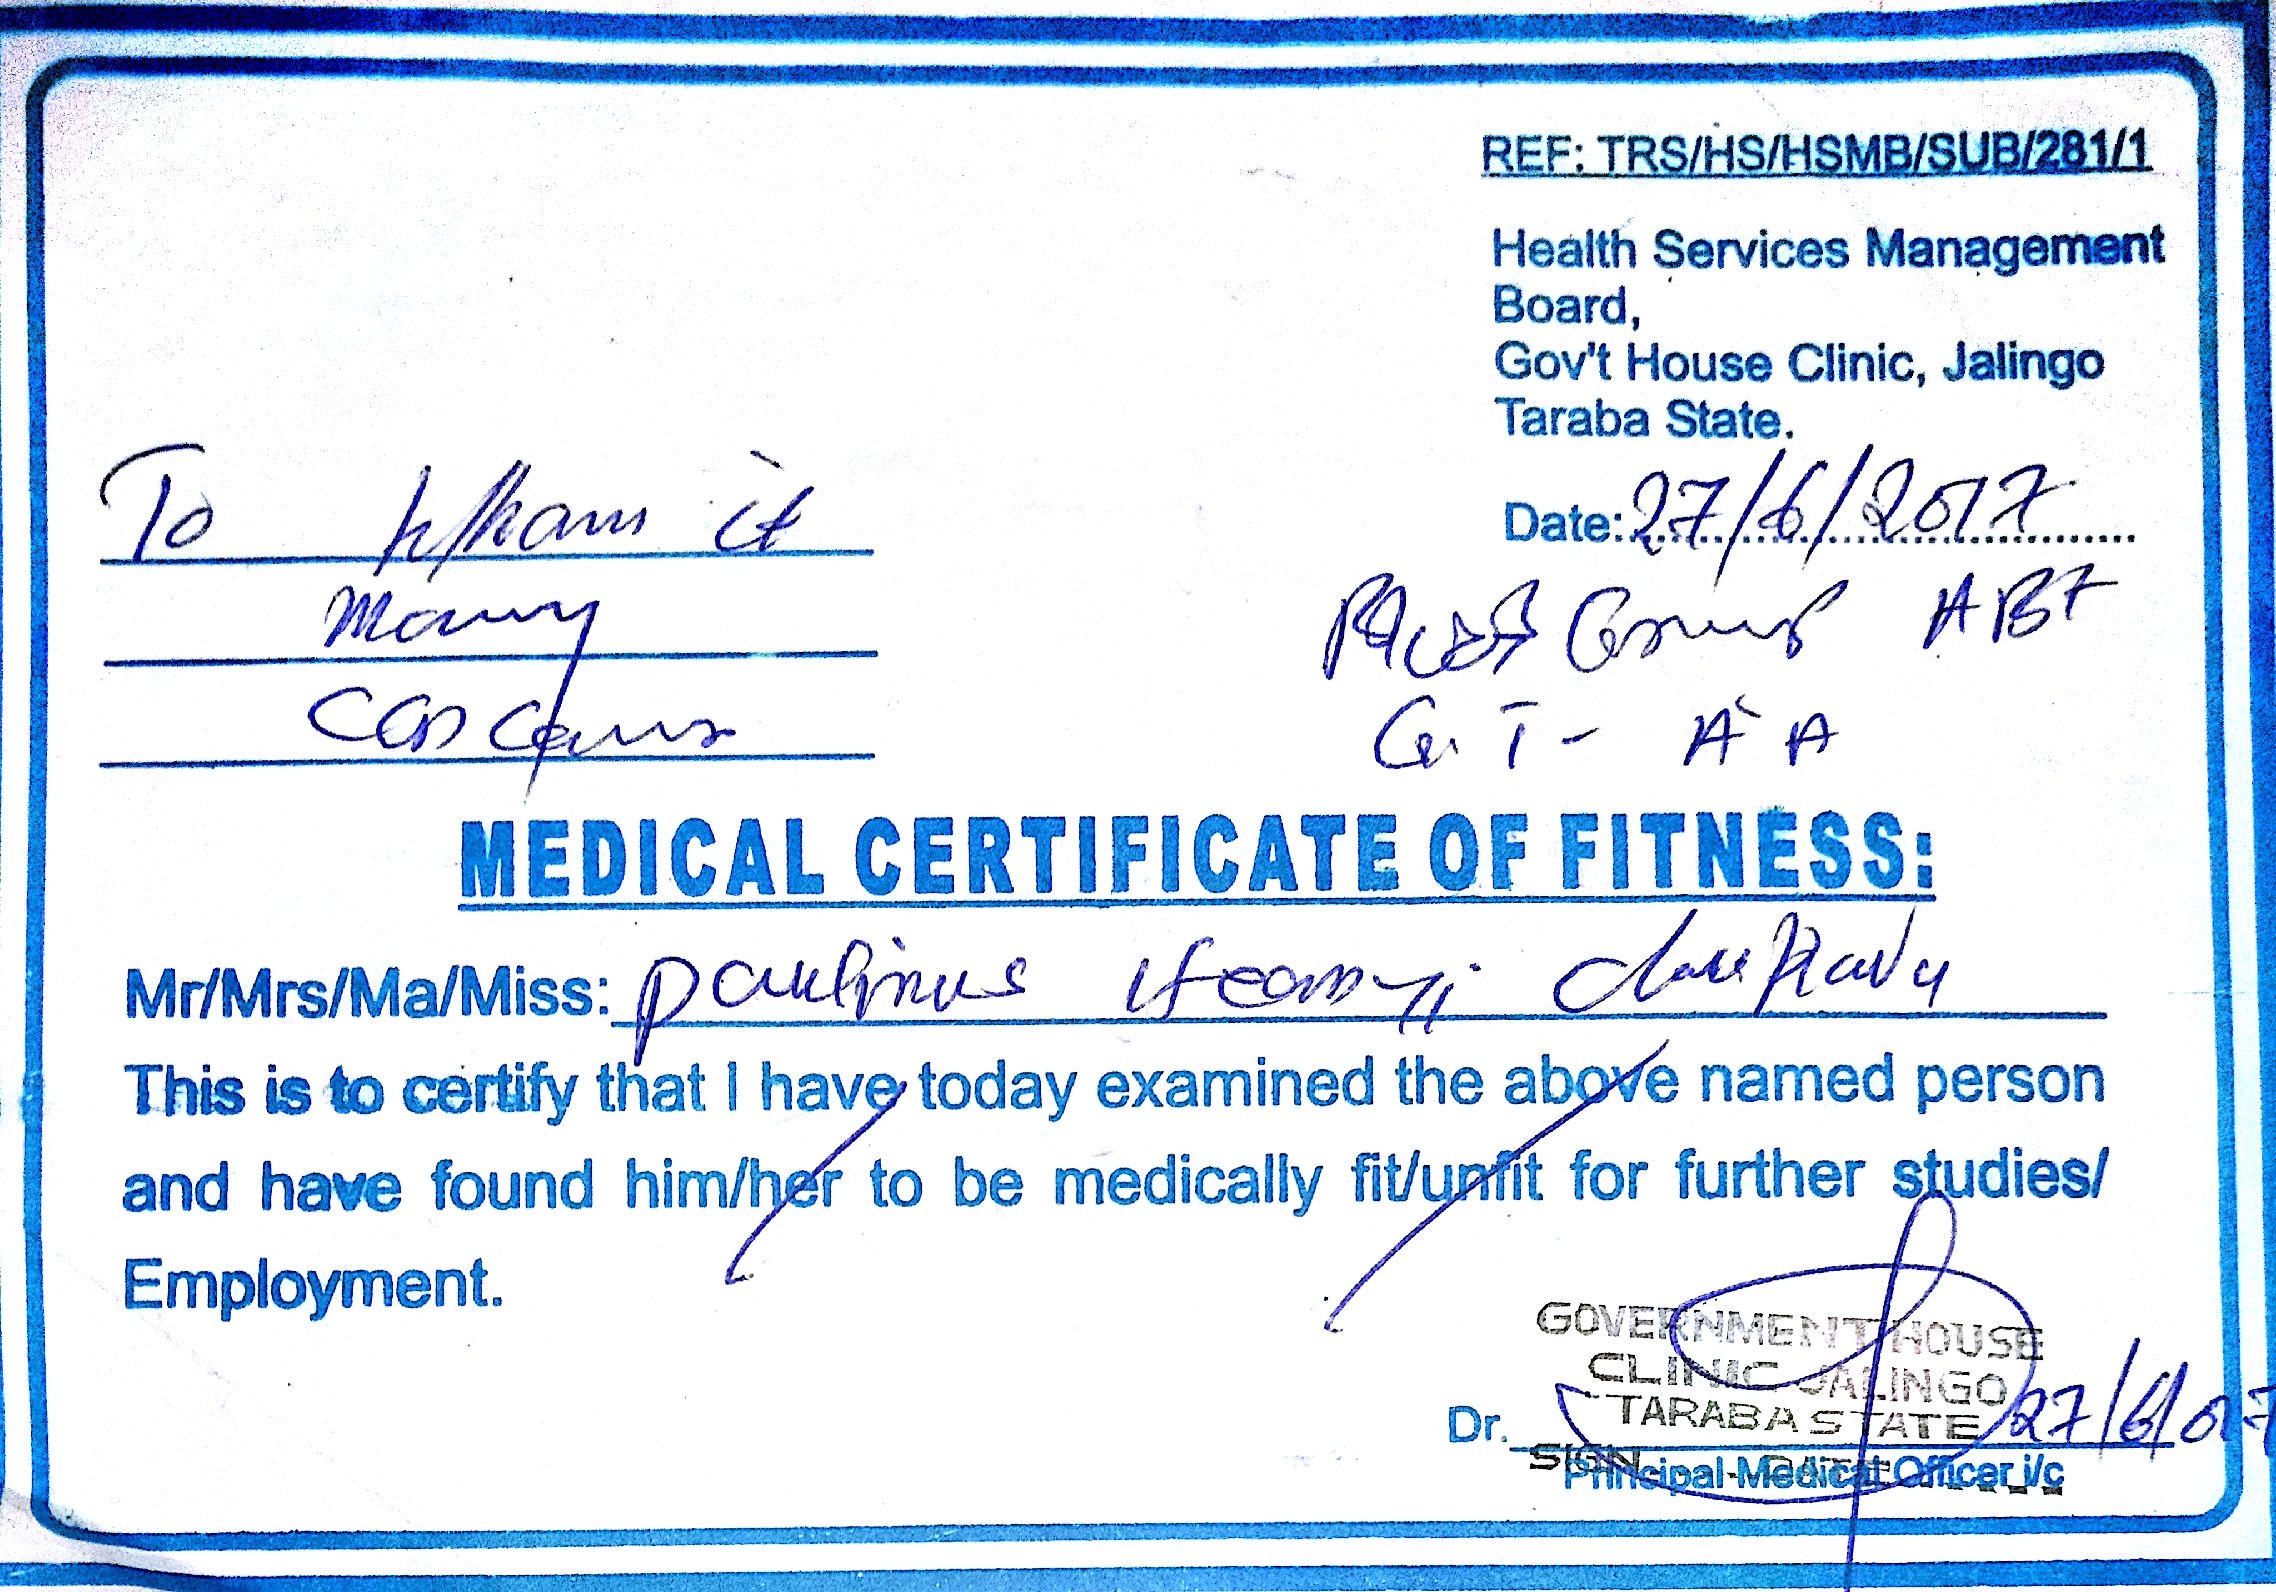 REF: TRS/HS/HSMB/SUB/281/1
Health Services Management
Board,
Gov't House Clinic, Jalingo
Taraba State.
Date: 27/6/2017
To Whom it
May
Concern
Blood Group AB+
G.T- AA
MEDICAL CERTIFICATE OF FITNESS:
Mr/Mrs/Ma/Miss: Paulinus Ifeanyi
This is to certify that I have today examined the above named person
and have found him/her to be medically fit/unfit for further studies/
Employment.
GOVERNMENT HOUSE
CLINIC JALINGO
TARABA STATE
Dr. 27/6/017
SIGN DATE
Principal Medical Officer i/c